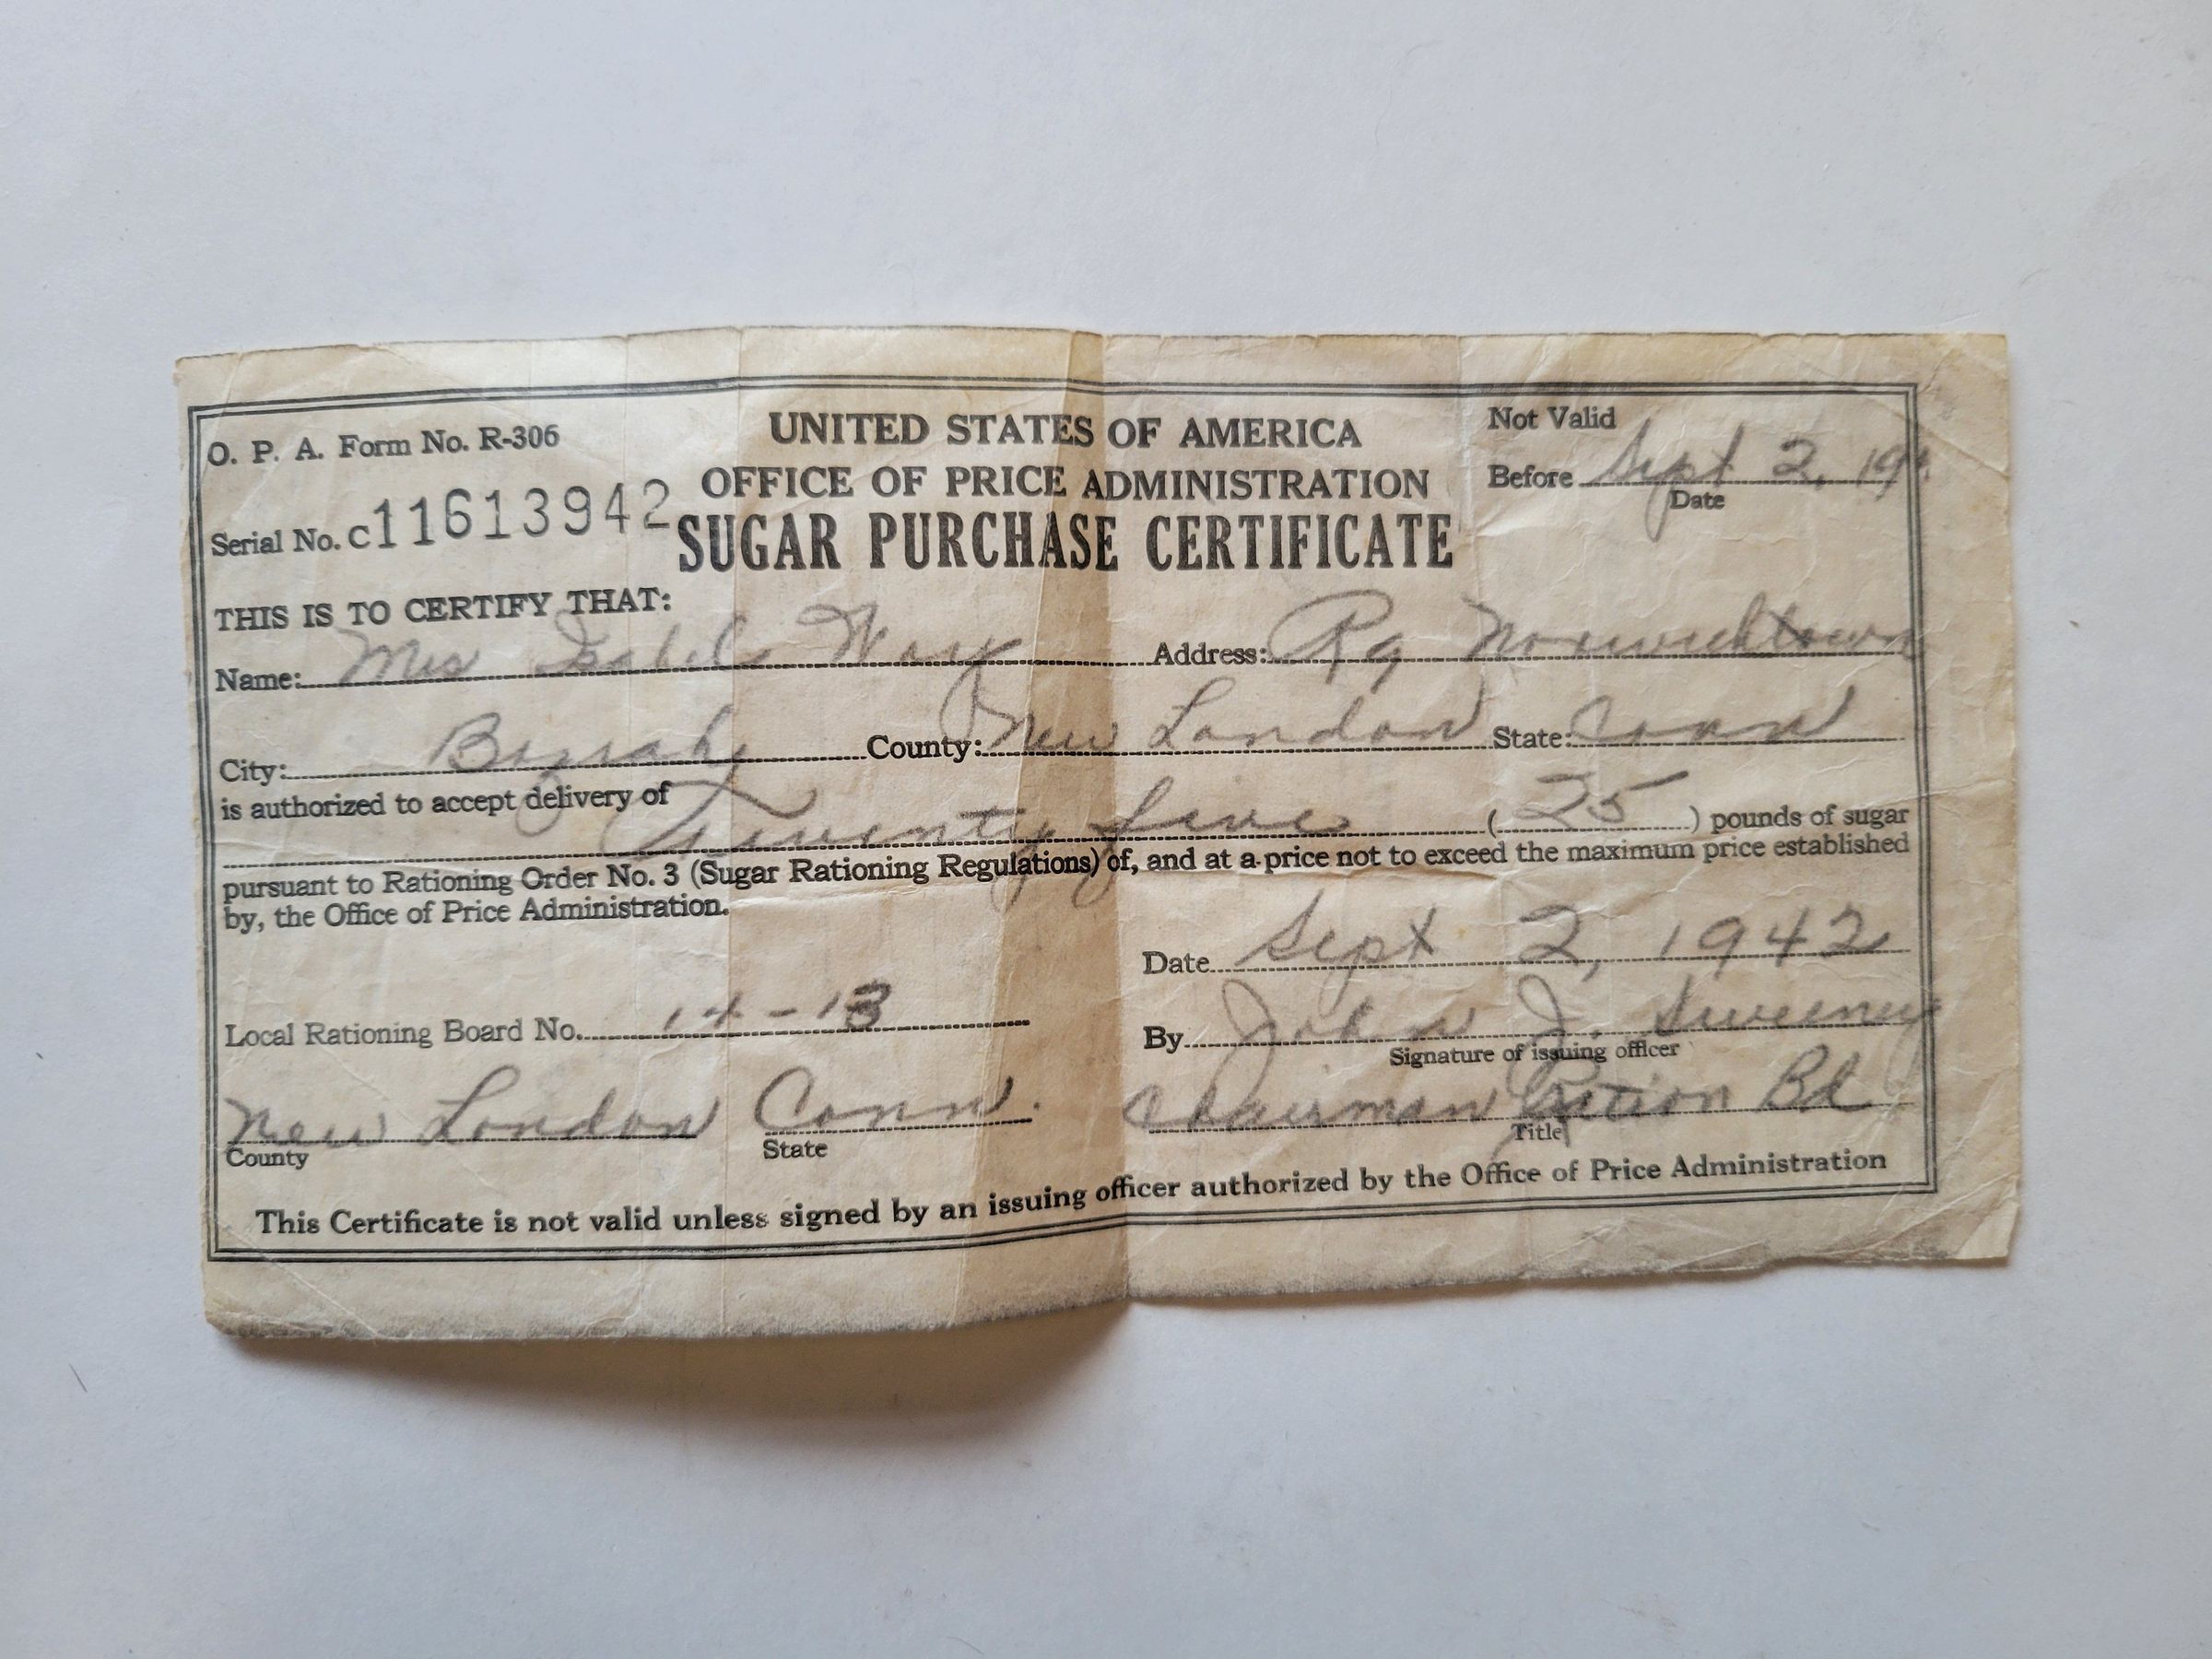 O. P. A. Form No. R-306
UNITED STATES OF AMERICA
OFFICE OF PRICE ADMINISTRATION
SUGAR PURCHASE CERTIFICATE
Not Valid
Before Sept 2, 19
Date
Serial No. C11613942
THIS IS TO CERTIFY THAT:
Name: Mrs Isabel Way Address: Norwichtown
City: Bozrah County: New London State: Conn
is authorized to accept delivery of Twenty five (25) pounds of sugar
pursuant to Rationing Order No. 3 (Sugar Rationing Regulations) of, and at a price not to exceed the maximum price established
by, the Office of Price Administration.
Date Sept 2, 1942
Local Rationing Board No. 14-13 By John J. Sweeney
Signature of issuing officer
New London Conn. Chairman Ration Bd
County State Title
This Certificate is not valid unless signed by an issuing officer authorized by the Office of Price Administration